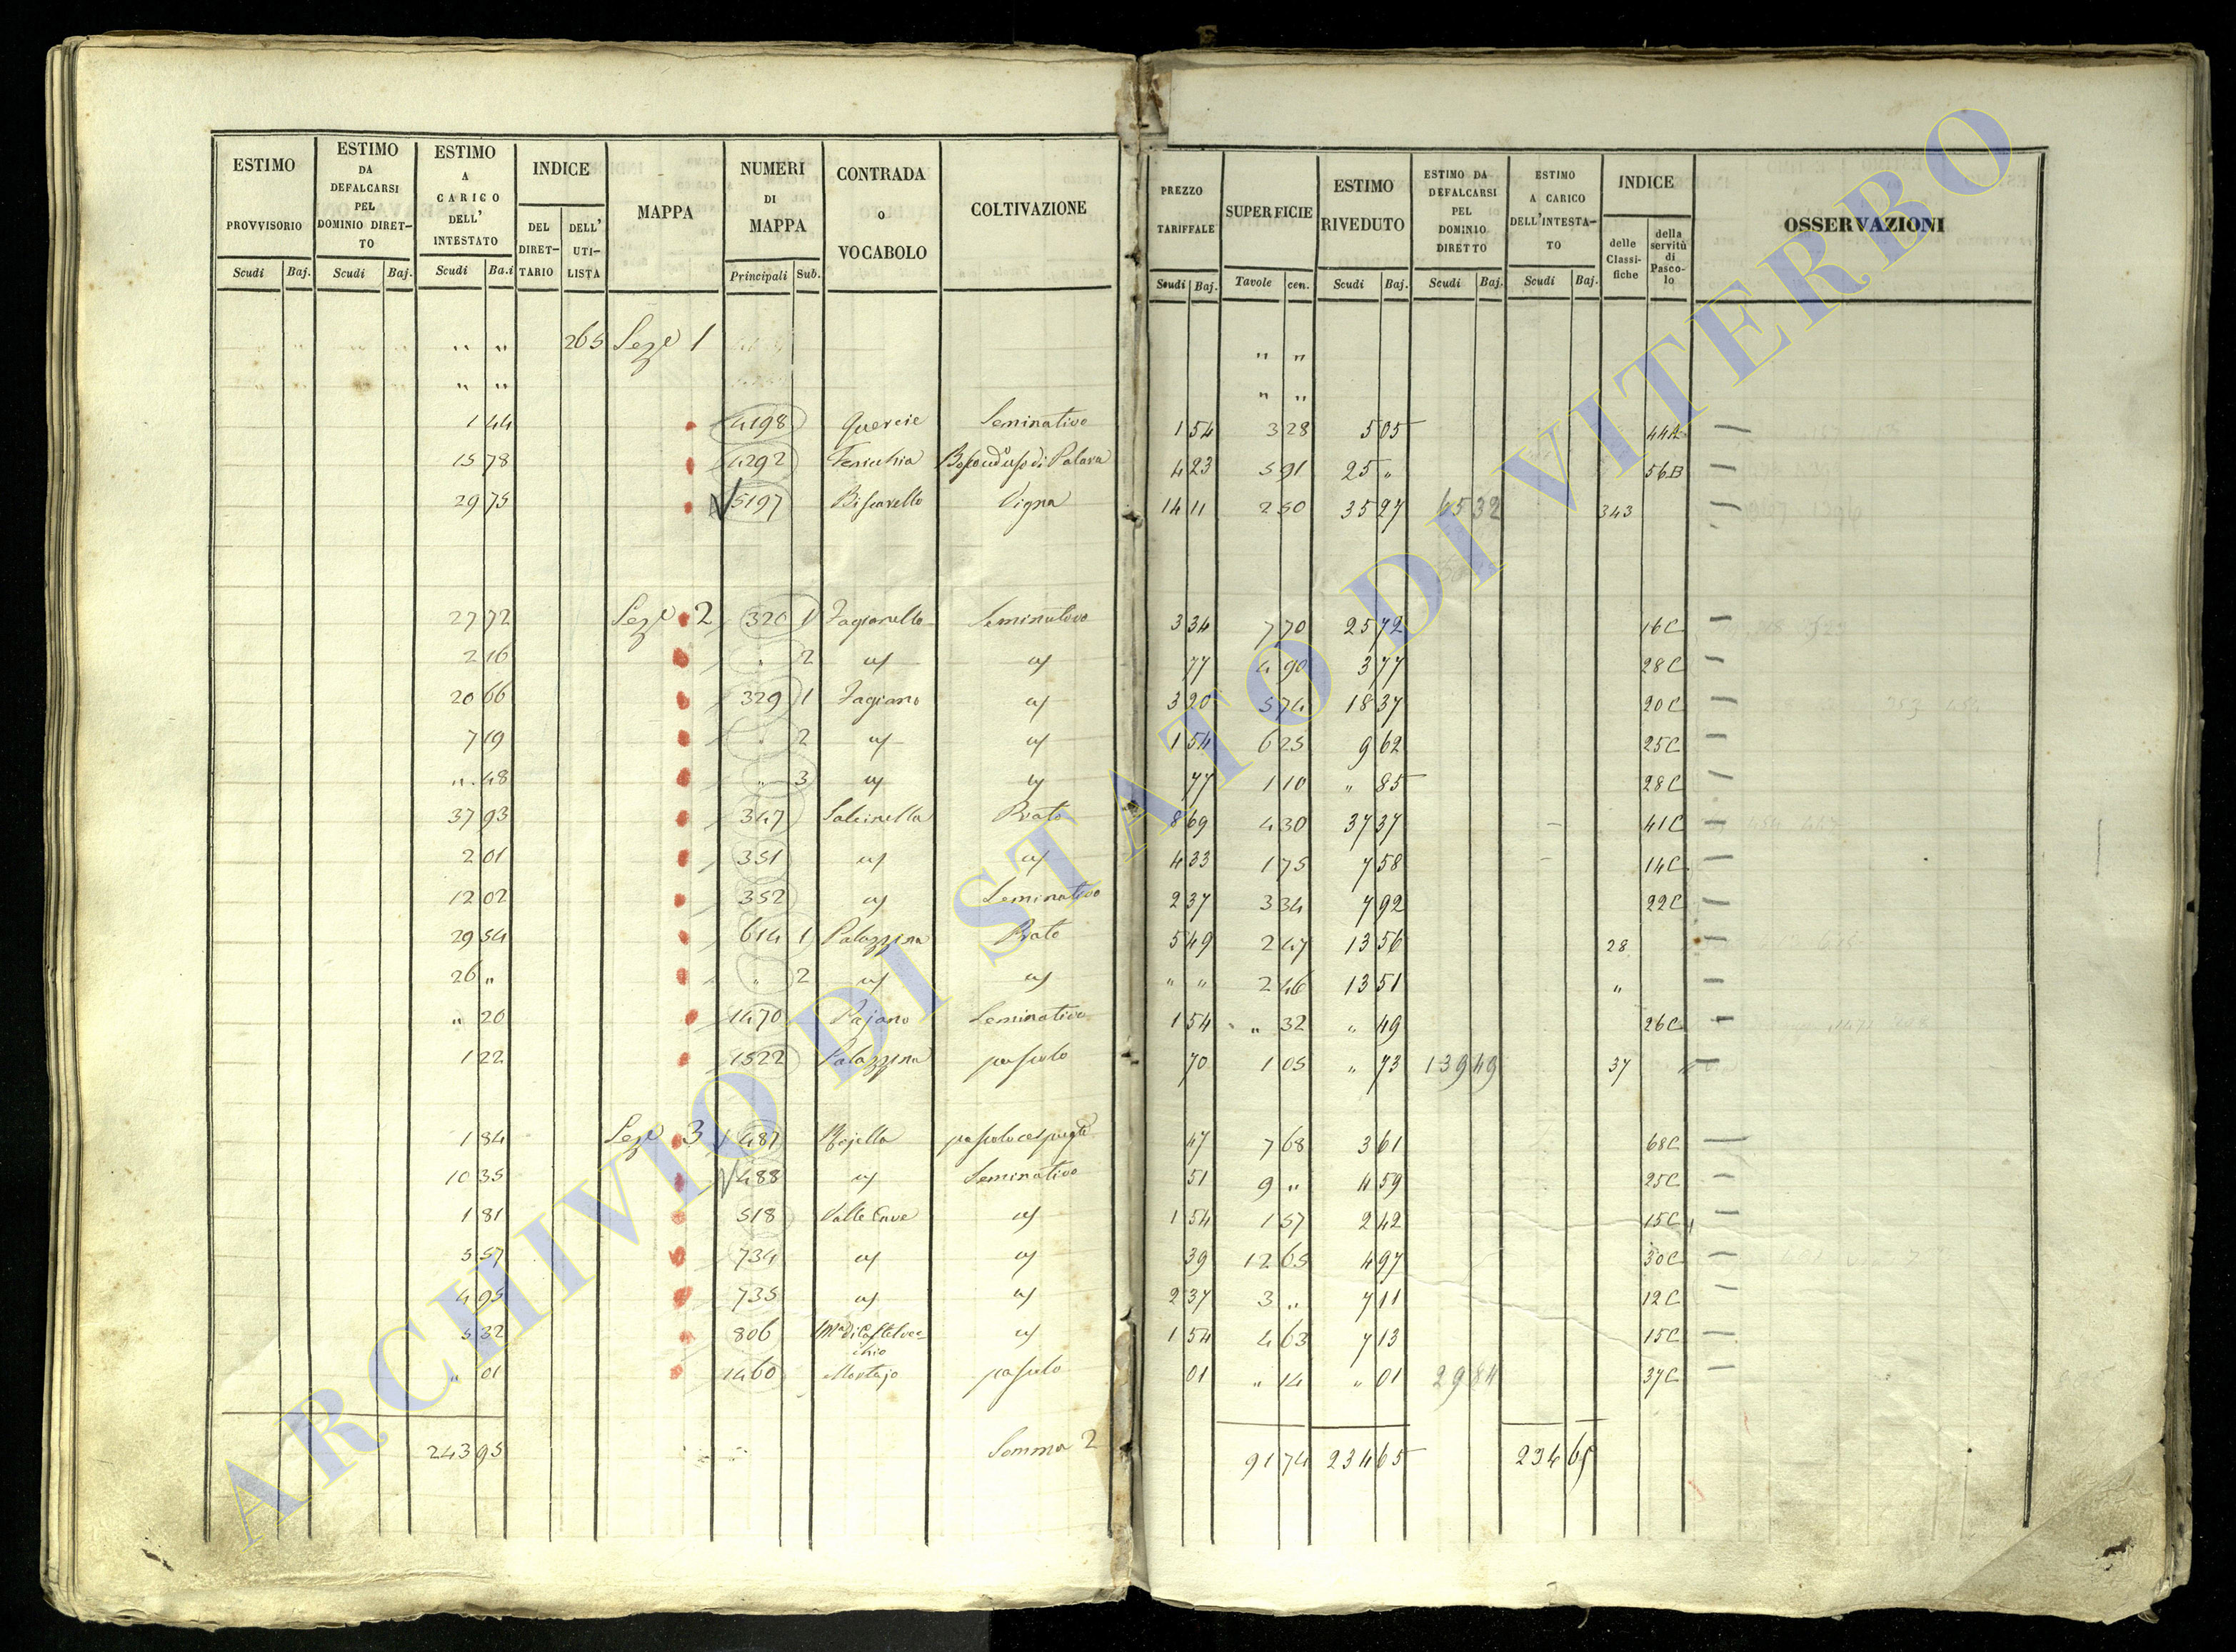 ESTIMO PROVVISORIO Scudi Baj.
ESTIMO DA DEFALCARSI PEL DOMINIO DIRET-TO Scudi Baj.
ESTIMO A CARICO DELL' INTESTATO Scudi Ba.i
INDICE DEL DIRET-TARIO DELL' UTI-LISTA
MAPPA
NUMERI DI MAPPA Principali Sub.
CONTRADA O VOCABOLO
COLTIVAZIONE
PREZZO TARIFFALE Scudi Baj.
SUPERFICIE Tavole cen.
ESTIMO RIVEDUTO Scudi Baj.
ESTIMO DA DEFALCARSI PEL DOMINIO DIRETTO Scudi Baj.
ESTIMO A CARICO DELL'INTESTA-TO Scudi Baj.
INDICE delle Classi-fiche della servitù di Pasco-lo
OSSERVAZIONI
" " 265 Seze 1 " "
" " " "
1 44 4198 Quercie Seminativo 1 54 3 28 5 05 44A
15 78 4292 4 23 5 91 25 " 56B
29 75 5197 Biscarello Vigna 14 11 2 50 35 27 65 32 343
27 72 Seze 2 320 1 Fagianello Seminativo 3 34 7 70 25 72 16C
2 16 " 2 " " 77 4 90 3 77 28C
20 66 329 1 Fagiano " 3 20 5 74 18 37 20C
7 19 " 2 " " 1 54 6 25 9 62 25C
" 48 " 3 " " 77 1 10 " 85 28C
37 93 347 Salcinella Prato 8 69 4 30 37 37 41C
2 01 351 " " 4 33 1 75 7 58 14C
12 02 352 " Seminativo 2 37 3 34 7 92 22C
29 54 614 1 Palazzina Prato 5 49 2 47 13 56 28
26 " " 2 " " " " 2 46 13 51 "
" 20 1470 Pajano Seminativo 1 54 " 32 " 49 26C
1 22 1522 Palazzina pascolo 70 1 05 " 73 139 49 37
1 84 Seze 3 487 pascolo cespugliato 47 7 68 3 61 68C
10 35 488 " Seminativo 51 9 " 4 59 25C
1 81 518 Valle Cave " 1 54 1 57 2 42 15C
5 57 734 " " 39 12 65 4 97 30C
4 95 735 " " 2 37 3 " 7 11 12C
5 32 806 " 1 54 4 63 7 13 15C
" 01 1460 Mortajo pascolo 01 " 14 " 01 29 84 37C
243 95 Somma 2 91 74 234 65 234 65
ARCHIVIO DI STATO DI VITERBO